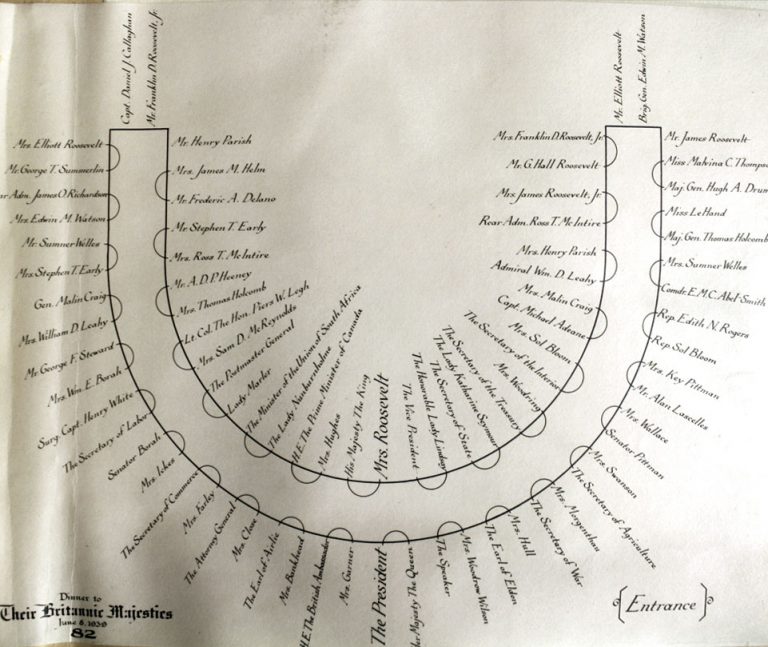 Capt. Daniel J. Callaghan
Mr. Franklin D. Roosevelt, Jr.
Mr. Elliott Roosevelt
Brig. Gen. Edwin M. Watson
Mrs. Elliott Roosevelt
Mr. George T. Summerlin
Adm. James O. Richardson
Mrs. Edwin M. Watson
Mr. Sumner Welles
Mrs. Stephen T. Early
Gen. Malin Craig
Mrs. William D. Leahy
Mr. George F. Steward
Mrs. Wm. E. Borah
Surg. Capt. Henry White
The Secretary of Labor
Senator Borah
Mrs. Ickes
The Secretary of Commerce
Mrs. Farley
The Attorney General
Mrs. Close
The Earl of Airlie
Mrs. Bankhead
H.E. The British Ambassador
Mrs. Garner
The President
Her Majesty The Queen
The Speaker
Mrs. Woodrow Wilson
The Earl of Eldon
Mrs. Hull
The Secretary of War
Mrs. Morgenthau
The Secretary of Agriculture
Mrs. Swanson
Senator Pittman
Mrs. Wallace
Mr. Alan Lascelles
Mrs. Key Pittman
Rep. Sol Bloom
Rep. Edith N. Rogers
Comdr. E.M.C. Abel-Smith
Mrs. Sumner Welles
Maj. Gen. Thomas Holcomb
Miss Le Hand
Maj. Gen. Hugh A. Drum
Miss Malvina C. Thomps
Mr. James Roosevelt
Mr. Henry Parish
Mrs. James M. Helm
Mr. Frederic A. Delano
Mr Stephen T. Early
Mrs. Ross T. McIntire
Mr. A.D.P. Heeney
Mrs. Thomas Holcomb
Lt. Col. The Hon. Piers W. Legh
Mrs. Sam D. McReynolds
The Postmaster General
Lady Marler
The Minister of the Union of South Africa
The Lady Nunburnholme
H.E. The Prime Minister of Canada
Mrs. Hughes
His Majesty The King
Mrs. Roosevelt
The Vice President
The Honorable Lady Lindsay
The Secretary of State
The Lady Katharine Seymour
The Secretary of the Treasury
Mrs. Woodring
The Secretary of the Interior
Mrs. Sol Bloom
Capt. Michael Adeane
Mrs. Malin Craig
Admiral Wm. D. Leahy
Mrs. Henry Parish
Rear Adm. Ross T. McIntire
Mrs. James Roosevelt, Jr.
Mr. G. Hall Roosevelt
Mrs. Franklin D. Roosevelt, Jr.
Dinner to
Their Britannic Majestics
June 8, 1939
82
{Entrance}